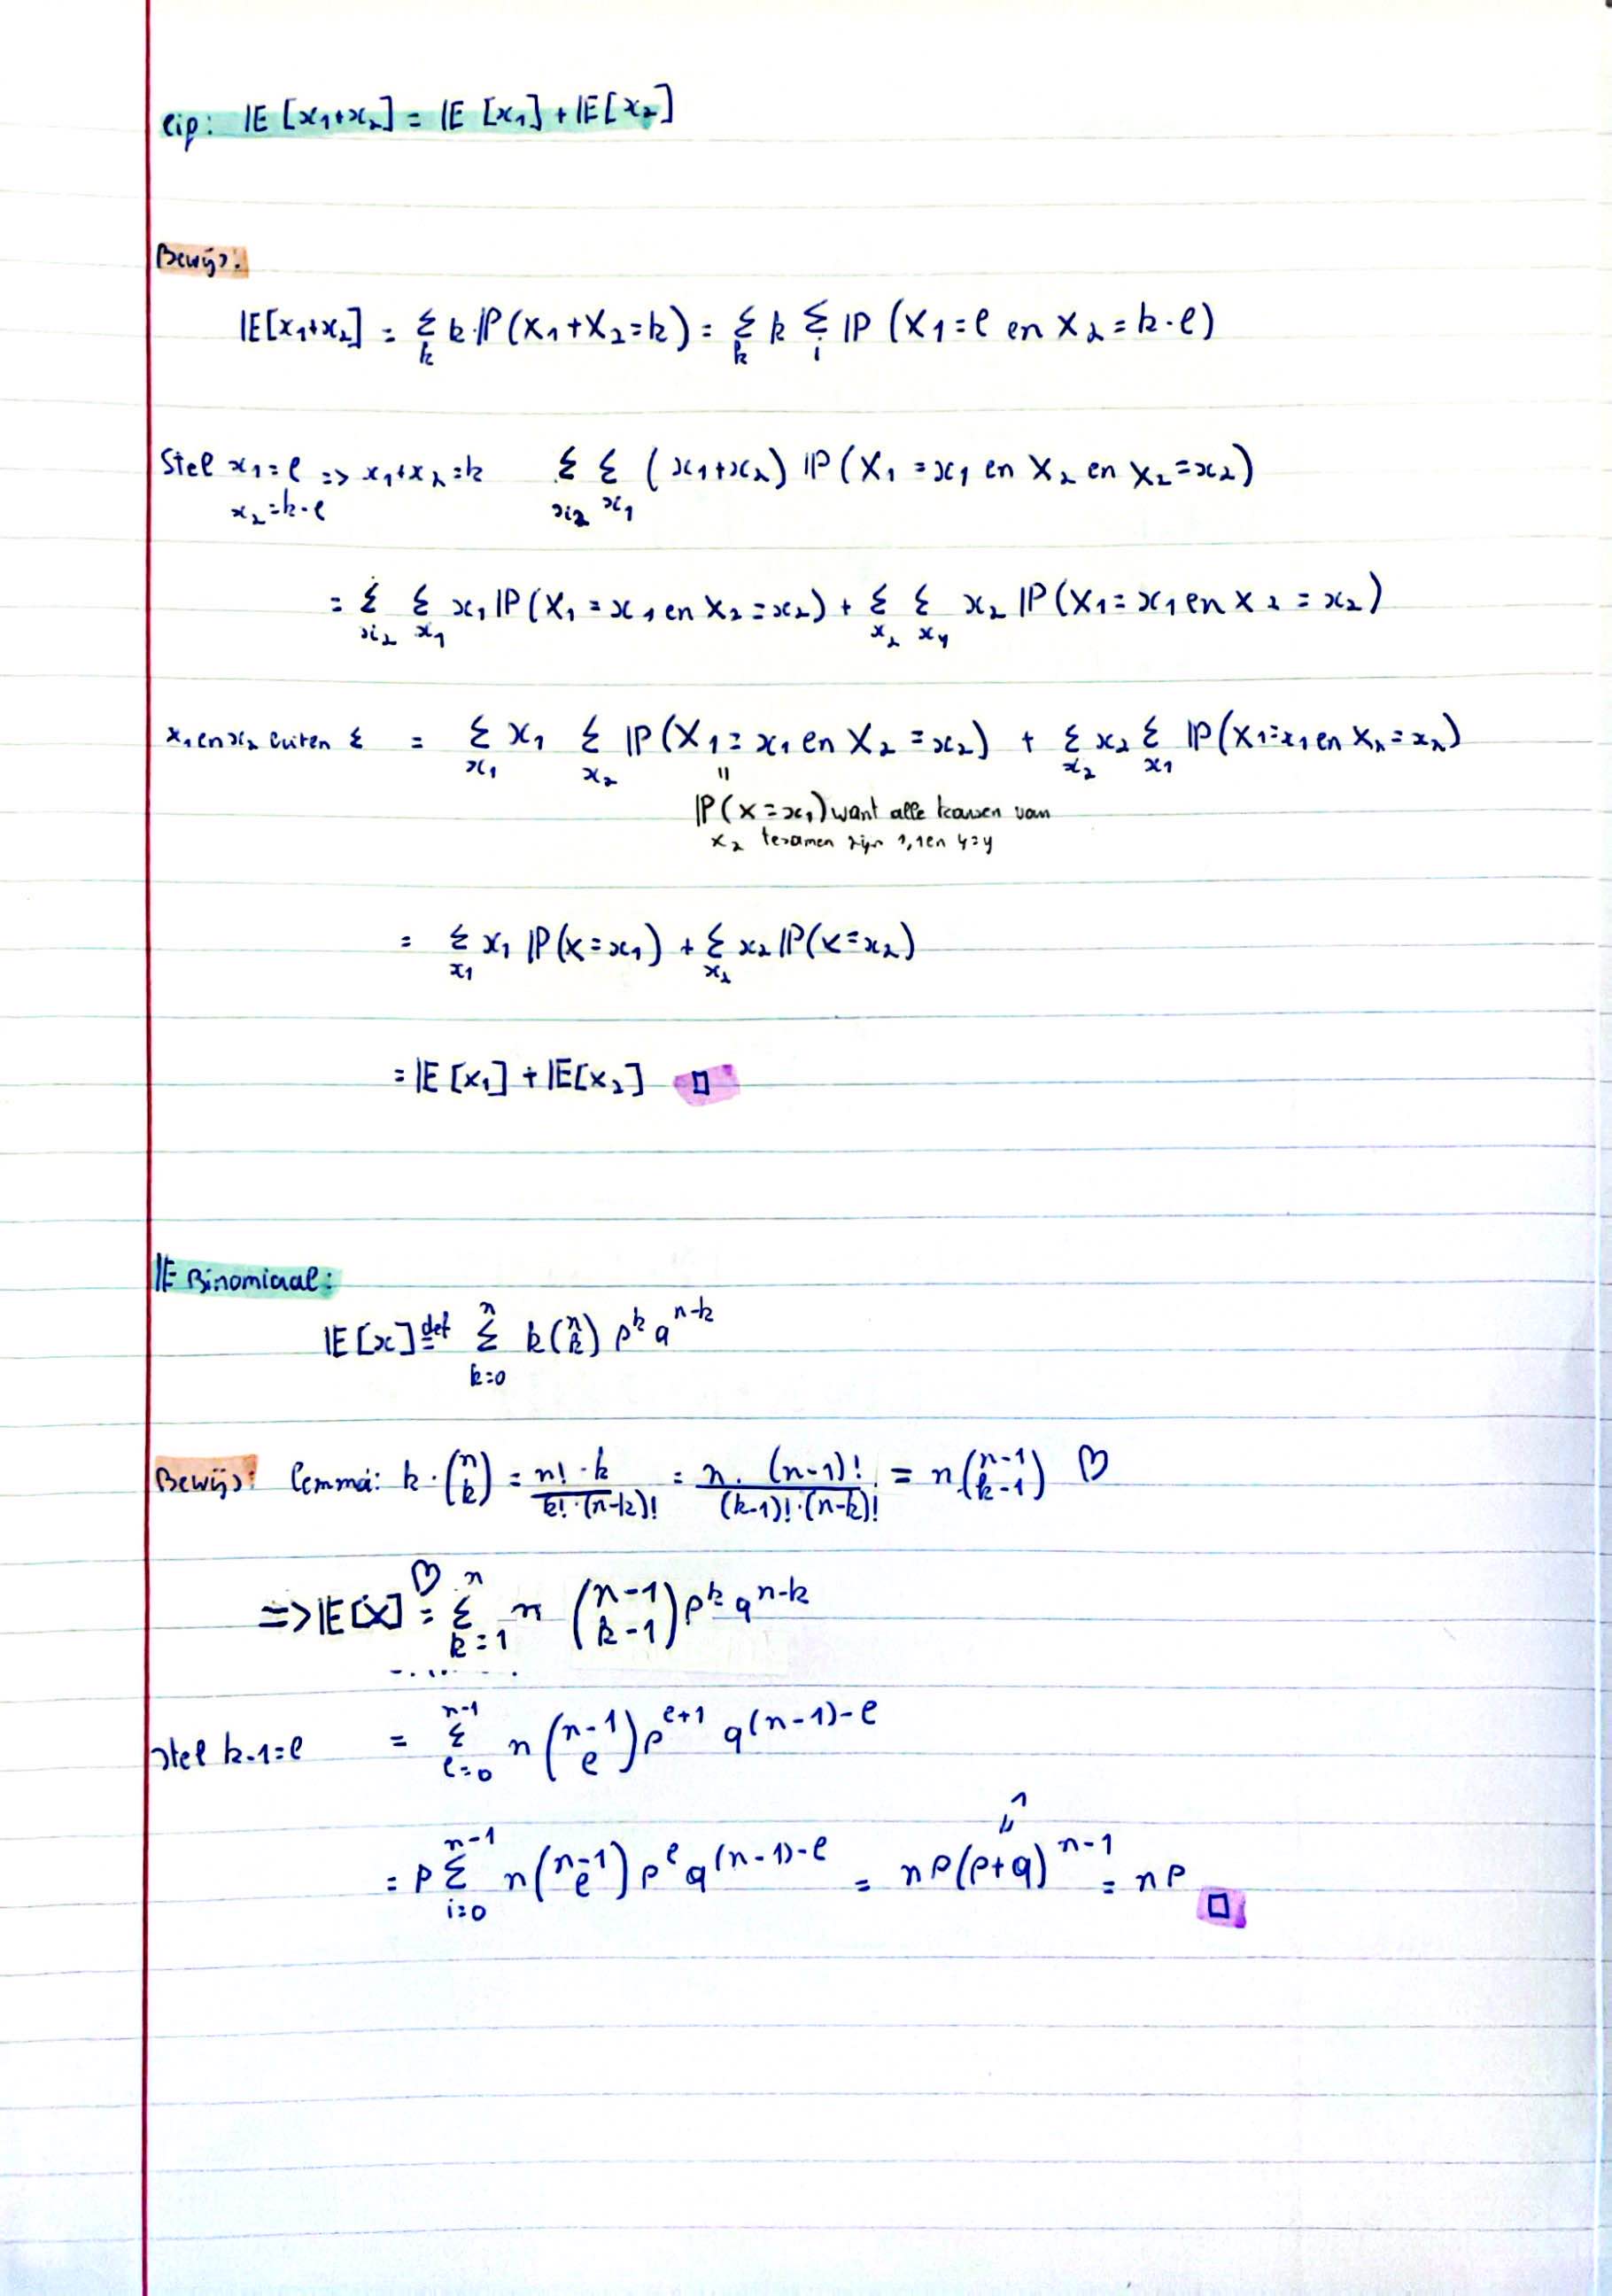 eip: 𝔼[x₁+x₂] = 𝔼[x₁] + 𝔼[x₂]
Bewijs:
𝔼[x₁+x₂] = Σ_k k·ℙ(X₁+X₂=k) = Σ_k k Σ_i ℙ(X₁=ℓ en X₂=k-ℓ)
Stel x₁=ℓ => x₁+x₂=k Σ_{x₂} Σ_{x₁} (x₁+x₂) ℙ(X₁=x₁ en X₂ en X₂=x₂)
x₂=k-ℓ
= Σ_{x₂} Σ_{x₁} x₁ ℙ(X₁=x₁ en X₂=x₂) + Σ_{x₂} Σ_{x₁} x₂ ℙ(X₁=x₁ en X₂=x₂)
x₁ en x₂ buiten Σ = Σ_{x₁} x₁ Σ_{x₂} ℙ(X₁=x₁ en X₂=x₂) + Σ_{x₂} x₂ Σ_{x₁} ℙ(X₁=x₁ en X₂=x₂)
||
ℙ(X=x₁) want alle kansen van
x₂ tesamen zijn 1, 1 en y=y
= Σ_{x₁} x₁ ℙ(X=x₁) + Σ_{x₂} x₂ ℙ(X=x₂)
= 𝔼[x₁] + 𝔼[x₂] □
𝔼 Binomiaal:
𝔼[x] =^{def} Σ_{k=0}^{n} k (n k) p^k q^{n-k}
Bewijs: Lemma: k·(n k) = n!·k / k!·(n-k)! = n·(n-1)! / (k-1)!·(n-k)! = n (n-1 k-1) ♡
=> 𝔼[X] =^♡ Σ_{k=1}^{n} n (n-1 k-1) p^k q^{n-k}
Stel k-1=ℓ = Σ_{ℓ=0}^{n-1} n (n-1 ℓ) p^{ℓ+1} q^{(n-1)-ℓ}
1
||
= p Σ_{i=0}^{n-1} n (n-1 ℓ) p^ℓ q^{(n-1)-ℓ} = np(p+q)^{n-1} = np □